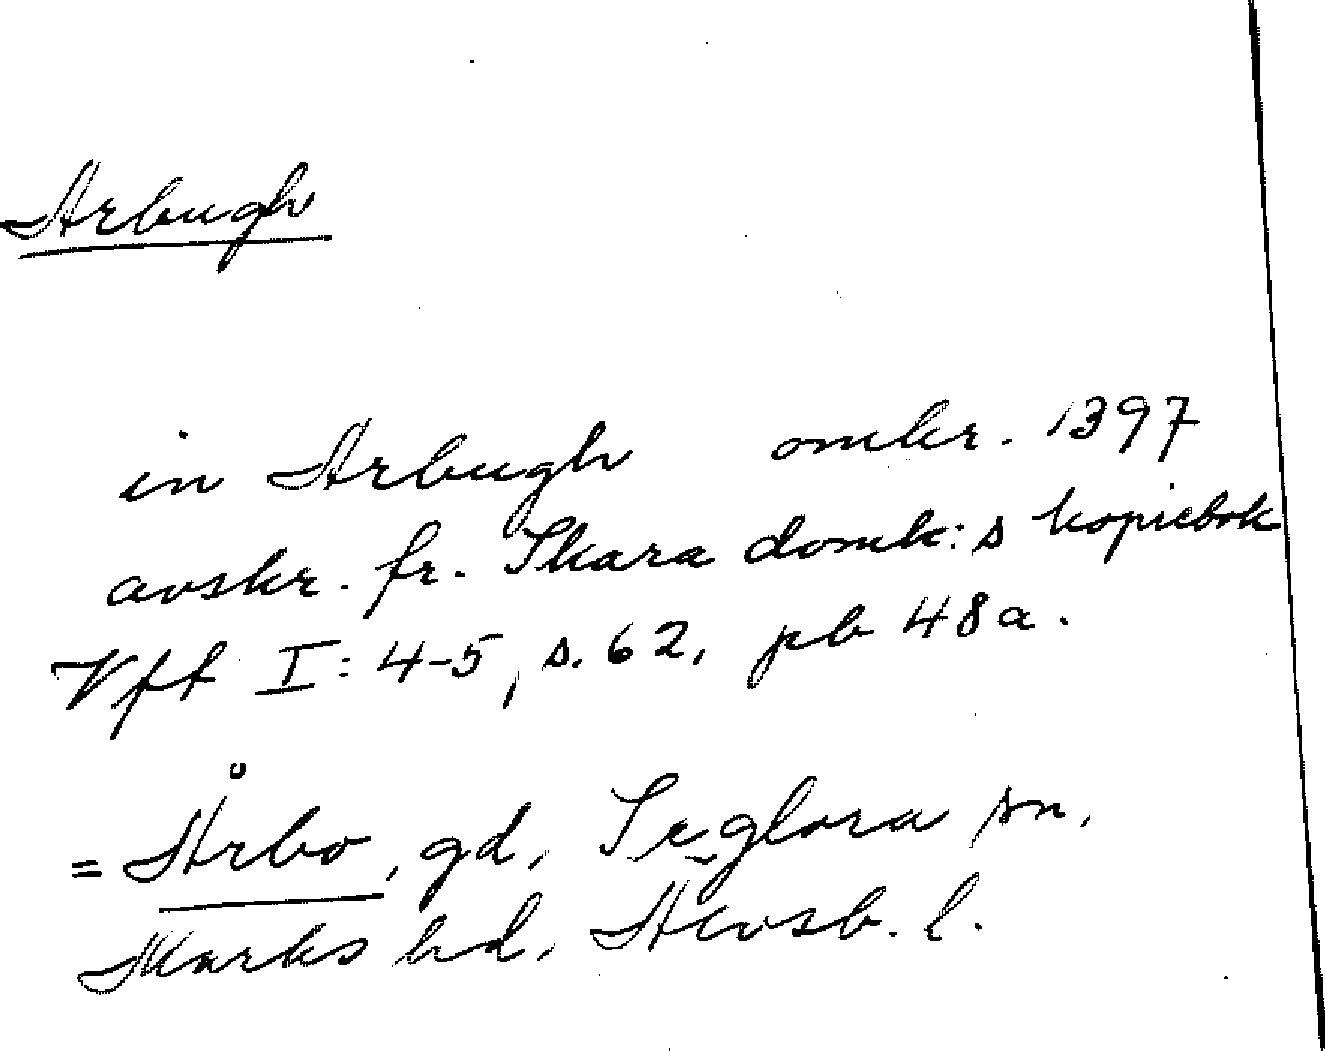 Arbugh
in Arbugh omkr. 1397
avskr. fr. Skara domk:s kopiebok
Vft I: 4-5, s. 62, pb 48a.
= Årbo, gd, Seglora sn,
Marks hd, Älvsb. l.